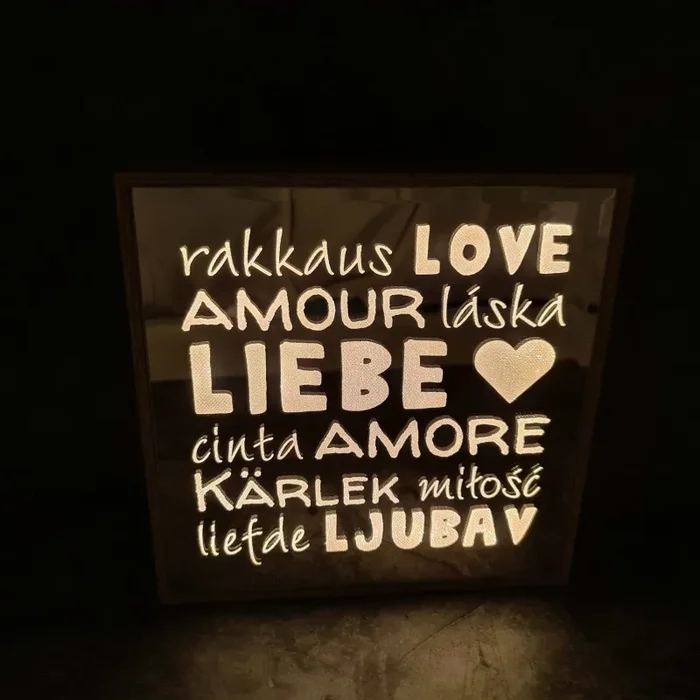 rakkaus LOVE
AMOUR láska
LIEBE
cinta AMORE
KÄRLEK miłość
liefde LJUBAV